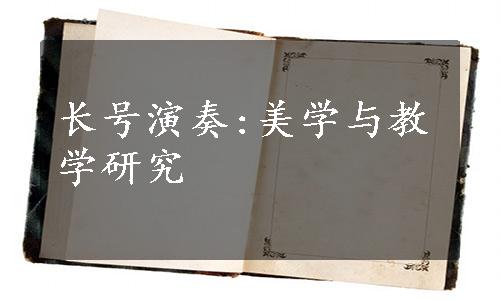 长号演奏:美学与教
学研究